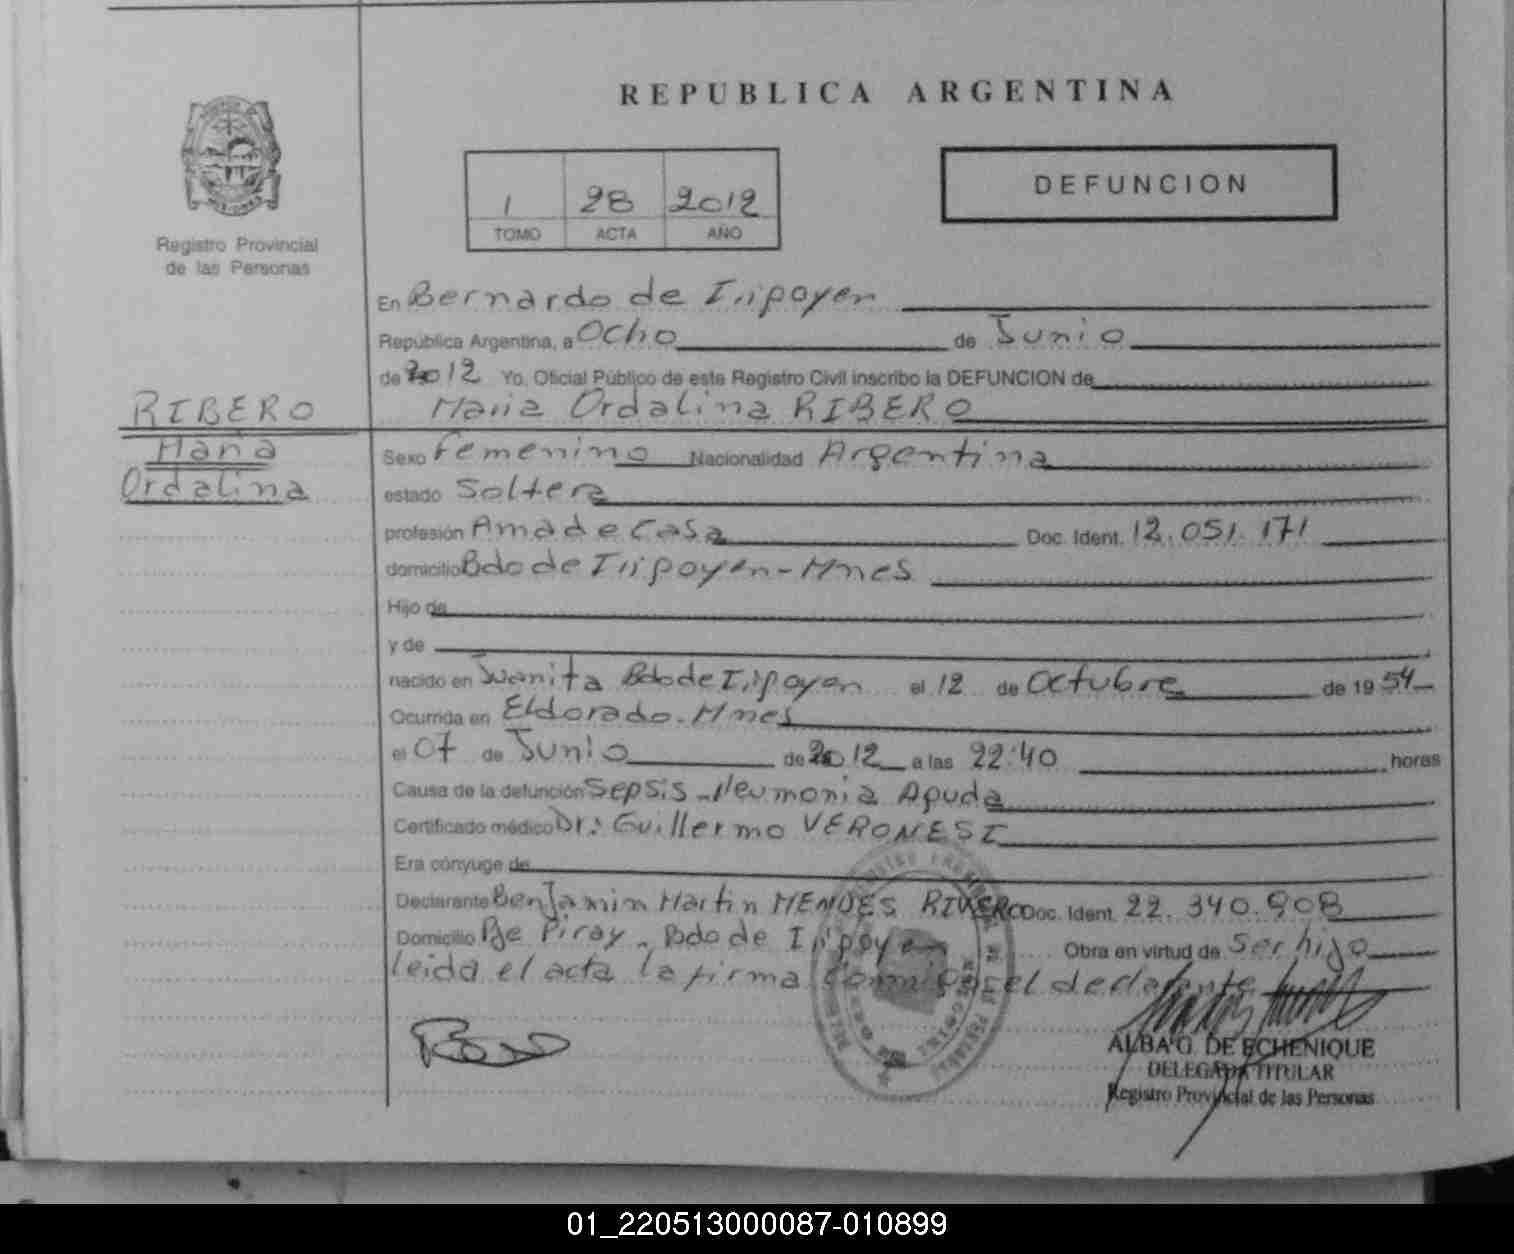 REPUBLICA ARGENTINA
DEFUNCION
1 28 2012
TOMO ACTA AÑO
Registro Provincial
de las Personas
En Bernardo de Irigoyen
República Argentina, a Ocho de Junio
de 2012 Yo, Oficial Público de este Registro Civil inscribo la DEFUNCION de
RIBERO
Maria Ordalina RIBERO
Maria
Ordalina
Sexo Femenino Nacionalidad Argentina
estado Soltera
profesión Ama de Casa Doc. Ident. 12.051.171
domicilio Bdo de Irigoyen - Mnes
Hijo de
y de
nacido en Juanita Bdo de Irigoyen el 12 de Octubre de 1954
Ocurrida en Eldorado - Mnes
el 07 de Junio de 2012 a las 22:40 horas
Causa de la defunción Sepsis - Neumonia Aguda
Certificado médico Dr: Guillermo VERONESI
Era cónyuge de
Declarante Benjamin Martin MENDES RIVERO Doc. Ident. 22.340.908
Domicilio Pje Piray - Bdo de Irigoyen Obra en virtud de Ser hijo
leida el acta la firma conmigo el declarante
ALBA G. DE ECHENIQUE
DELEGADA TITULAR
Registro Provincial de las Personas
01_220513000087-010899